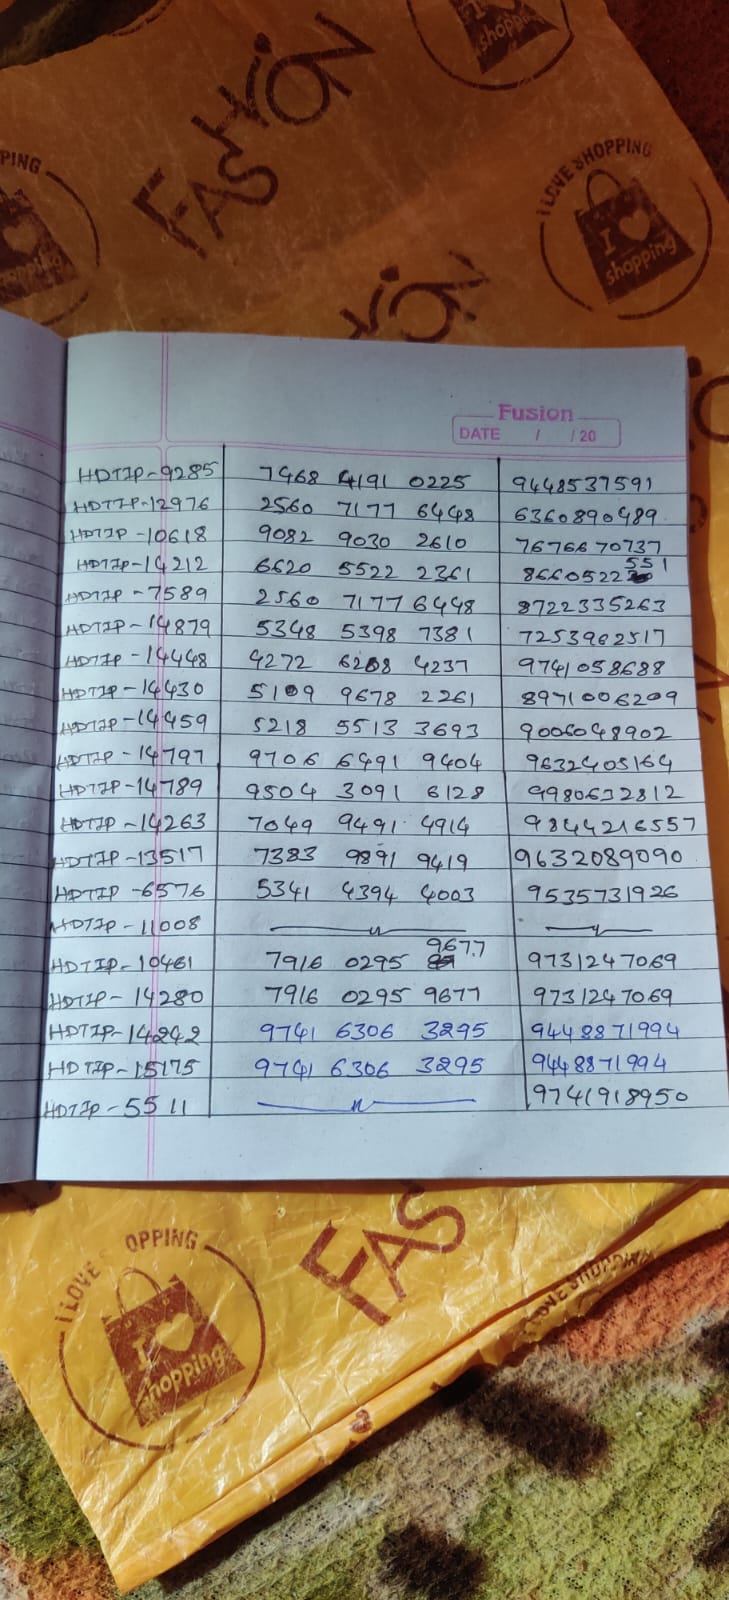 FASHION
I
shopping
PING
hopping
I LOVE SHOPPING
I
shopping
Fusion
DATE / / 20
HDTIP-9285 7468 4191 0225 9448537591
HDTIP-12976 2560 7177 6448 6360890489
HDTIP-10618 9082 9030 2610 7676670737
HDTIP-14212 6620 5522 2361 8660522551
HDTIP-7589 2560 7177 6448 8722335263
HDTIP-14879 5348 5398 7381 7253962517
HDTIP-14448 4272 6208 4237 9741058688
HDTIP-14430 5109 9678 2261 8971006209
HDTIP-14459 5218 5513 3693 9006048902
HDTIP-14797 9706 6491 9404 9632405164
HDTIP-14789 9504 3091 6128 9980632812
HDTIP-14263 7049 9491 4914 9844216557
HDTIP-13517 7383 9891 9419 9632089090
HDTIP-6576 5341 4394 4003 9535731926
HDTIP-11008
HDTIP-10461 7916 0295 9677 9731247069
HDTIP-14280 7916 0295 9677 9731247069
HDTIP-14242 9741 6306 3295 9448871994
HDTIP-15175 9741 6306 3295 9448871994
HDTIP-5511 9741918950
I LOVE OPPING
I
shopping
FAS